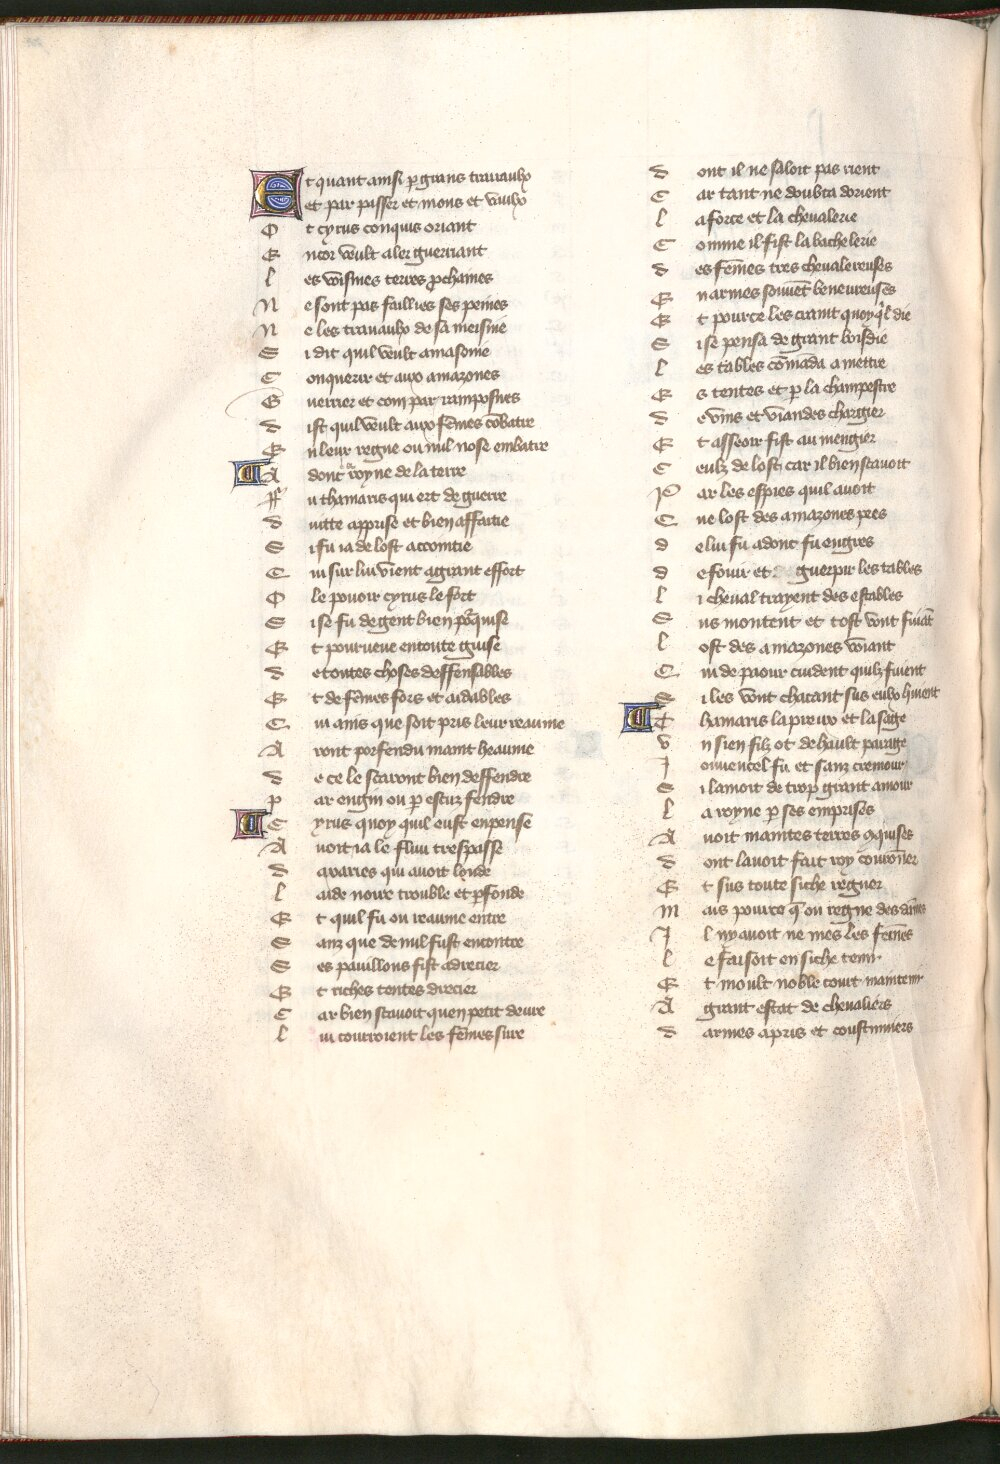 Et quant ainsi p grans trauaulx
et par passer et mons et vaulx
Ot cyrus conquis oriant
Encor veult aler guerriant
Les voisines terres pchaines
Ne sont pas faillies ses peines
Ne les trauaulx de sa meisnie
Si dit quil veult amasonie
Conquerir et aux amazones
Guerriez et com par ramposnes
dist quil veult aux fēmes cōbatre
En leur regne ou nul nose embatre
Adont royne de la terre
Fu thamaris qui ert de guerre
duitte apprise et bien affaitie
Si fu ia de lost accointie
Cui sur lui vient a grant effort
O le pouoir cyrus le fort
Si se fu de gent bien porquise
Et pourueue en toute guise
de toutes choses deffensables
Et de fēmes fors et aidables
Cui ains que soit pris leur reaume
Aront porfendu maint heaume
de ce le scaront bien deffendre
par engin ou p escuz fendre
Cyrus quoy quil eust en pense
Auoit ia le fluu trespasse
daraxes qui auoit londe
Laide noire trouble et pfonde
Et quil fu ou reaume entre
Sanz que de nil fust encontre
Ses pauillons fist adrecier
Et riches tentes drecier
Car bien scauoit quen petit deure
Lui couroient les fēmes sure
dont il ne faloit pas rient
Car tant ne doubta dorient
La force et la cheualerie
Comme il fist la bachelerie
des fēmes tres cheualereuses
En armes souuēt beneureuses
Et pource les craint quoy ql die
Si se pensa de grant boisdie
Les tables cōmāda a mettre
Es tentes et p la champestre
de vins et viandes chargier
Et asseoir fist au mengier
Ceulz de lost car il bien scauoit
Par les espies quil auoit
Cne lost des amazones pres
de lui fu adont fu engres
de fouir et guerpir les tables
Li cheual trayent des estables
Sus montent et tost vont fuiāt
Lost des amazones voiant
Cui de paour cuident quilz fuient
Si les vont chacant sus eulx huient
Thamaris la preux et la sage
Vn sien filz ot de hault parage
Jouuencel fu et sanz cremour
Si lamoit de trop grant amour
La royne p ses emprises
Auoit maintes terres 9quises
dont lauoit fait roy courōner
Et sus toute siche regner
Mais pource q ou regne des dāes
Il ny auoit ne mes les fēmes
Le faisoit en siche tenir
Et moult noble court maintenir
A grant estat de cheualiers
darmes apris et coustumiers